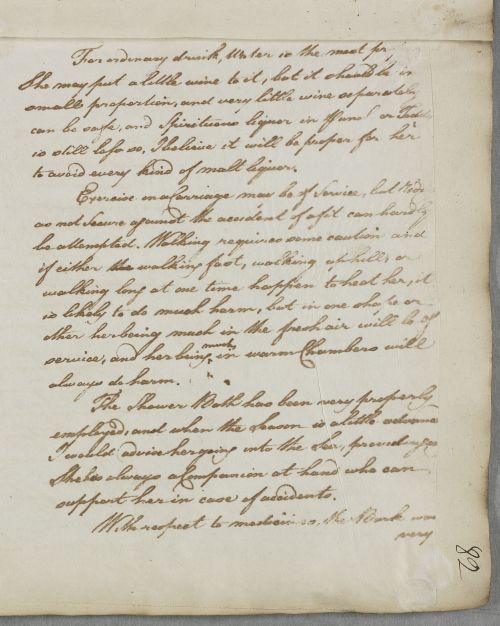 For ordinary drink, Water is the most pr
She may put a little wine to it, but it should be in
small proportion, and very little wine separately
can be safe, and Spirituous liquor in Punch or Todd
is still less so, I believe it will be proper for her
to avoid every kind of malt liquor.
Exercise in a Carriage may be of Service, but
as not secure against the accident of a fit can hardly
be attempted. Walking requires some caution and
if either the walking fast, walking up hill, or
walking long at one time happen to heat her, it
is likely to do much harm, but in one shape or
other her being much in the fresh air will be of
service, and her being much in warm Chambers will
always do harm.
The Shower Bath has been very properly
employed, and when the Season is a little advanced
I would advise her going into the Sea, providing
She has always a Companion at hand who can
support her in case of accidents.
With respect to medicines, the Bark was
very
82